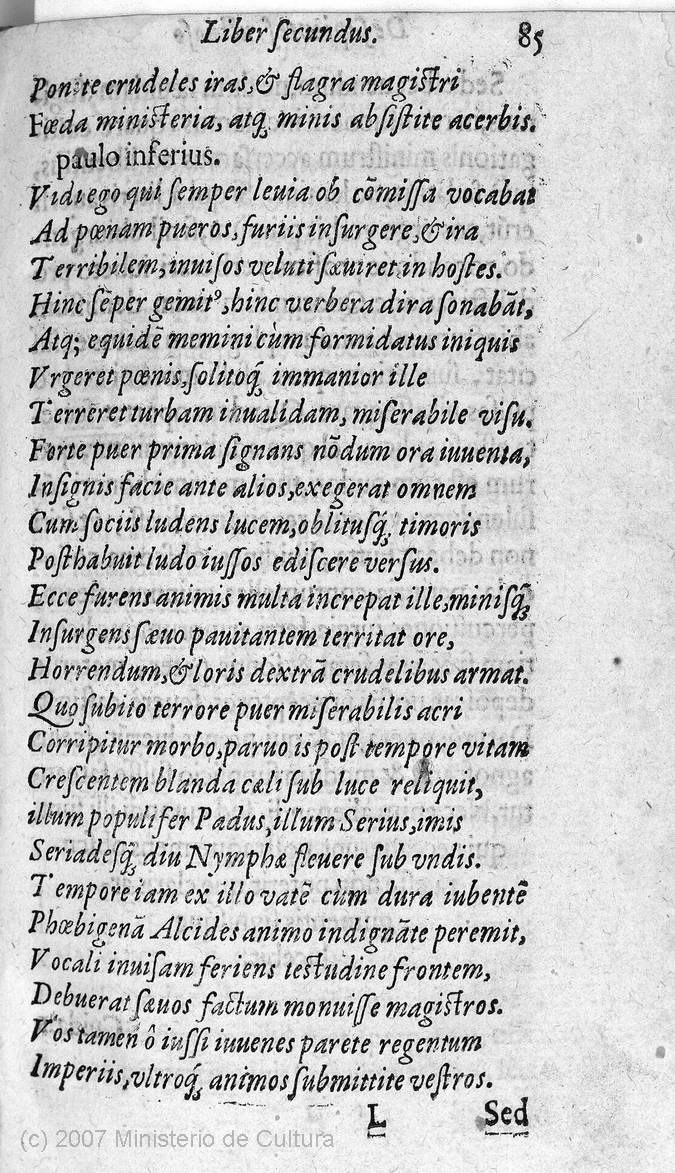 Liber ſecundus. 85
Ponite crudeles iras, & flagra magiſtri
Fœda miniſteria, atq; minis abſiſtite acerbis.
paulo inferius.
Vidi ego qui ſemper leuia ob cõmiſſa vocabat
Ad pœnam pueros, furiis inſurgere, & ira
Terribilem, inuiſos veluti ſæuiret in hoſtes.
Hinc ſẽper gemitꝰ, hinc verbera dira ſonabãt,
Atq; equidẽ memini cùm formidatus iniquis
Vrgeret pœnis, ſolitoq́; immanior ille
Terreret turbam inualidam, miſerabile viſu.
Forte puer prima ſignans nõdum ora iuuenta,
Inſignis facie ante alios, exegerat omnem
Cum ſociis ludens lucem, oblituſq́; timoris
Poſthabuit ludo iuſſos ediſcere verſus.
Ecce furens animis multa increpat ille, miniſq́;
Inſurgens ſæuo pauitantem territat ore,
Horrendum, & loris dextrã crudelibus armat.
Quo ſubito terrore puer miſerabilis acri
Corripitur morbo, paruo is poſt tempore vitam
Creſcentem blanda cæli ſub luce reliquit,
illum populifer Padus, illum Serius, imis
Seriadeſq́; diu Nymphæ fleuere ſub vndis.
Tempore iam ex illo vatẽ cùm dura iubentẽ
Phœbigenã Alcides animo indignãte peremit,
Vocali inuiſam feriens teſtudine frontem,
Debuerat ſæuos factum monuiſſe magiſtros.
Vos tamen ô iuſſi iuuenes parete regentum
Imperiis, vltroq́; animos ſubmittite veſtros.
L Sed
(c) 2007 Ministerio de Cultura